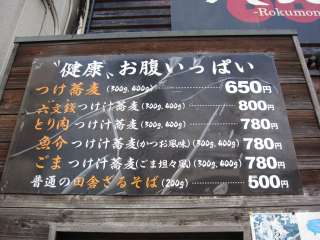 -Rokumon
"健康"お腹いっぱい
つけ蕎麦(300g,400g)………650円
六文銭つけ汁蕎麦(300g,400g)……800円
とり肉つけ汁蕎麦(300g,400g)……780円
魚介つけ汁蕎麦(かつお風味)(300g,400g)780円
ごまつけ汁蕎麦(ごま坦々風)(300g,400g)780円
普通の田舎ざるそば(200g)………500円